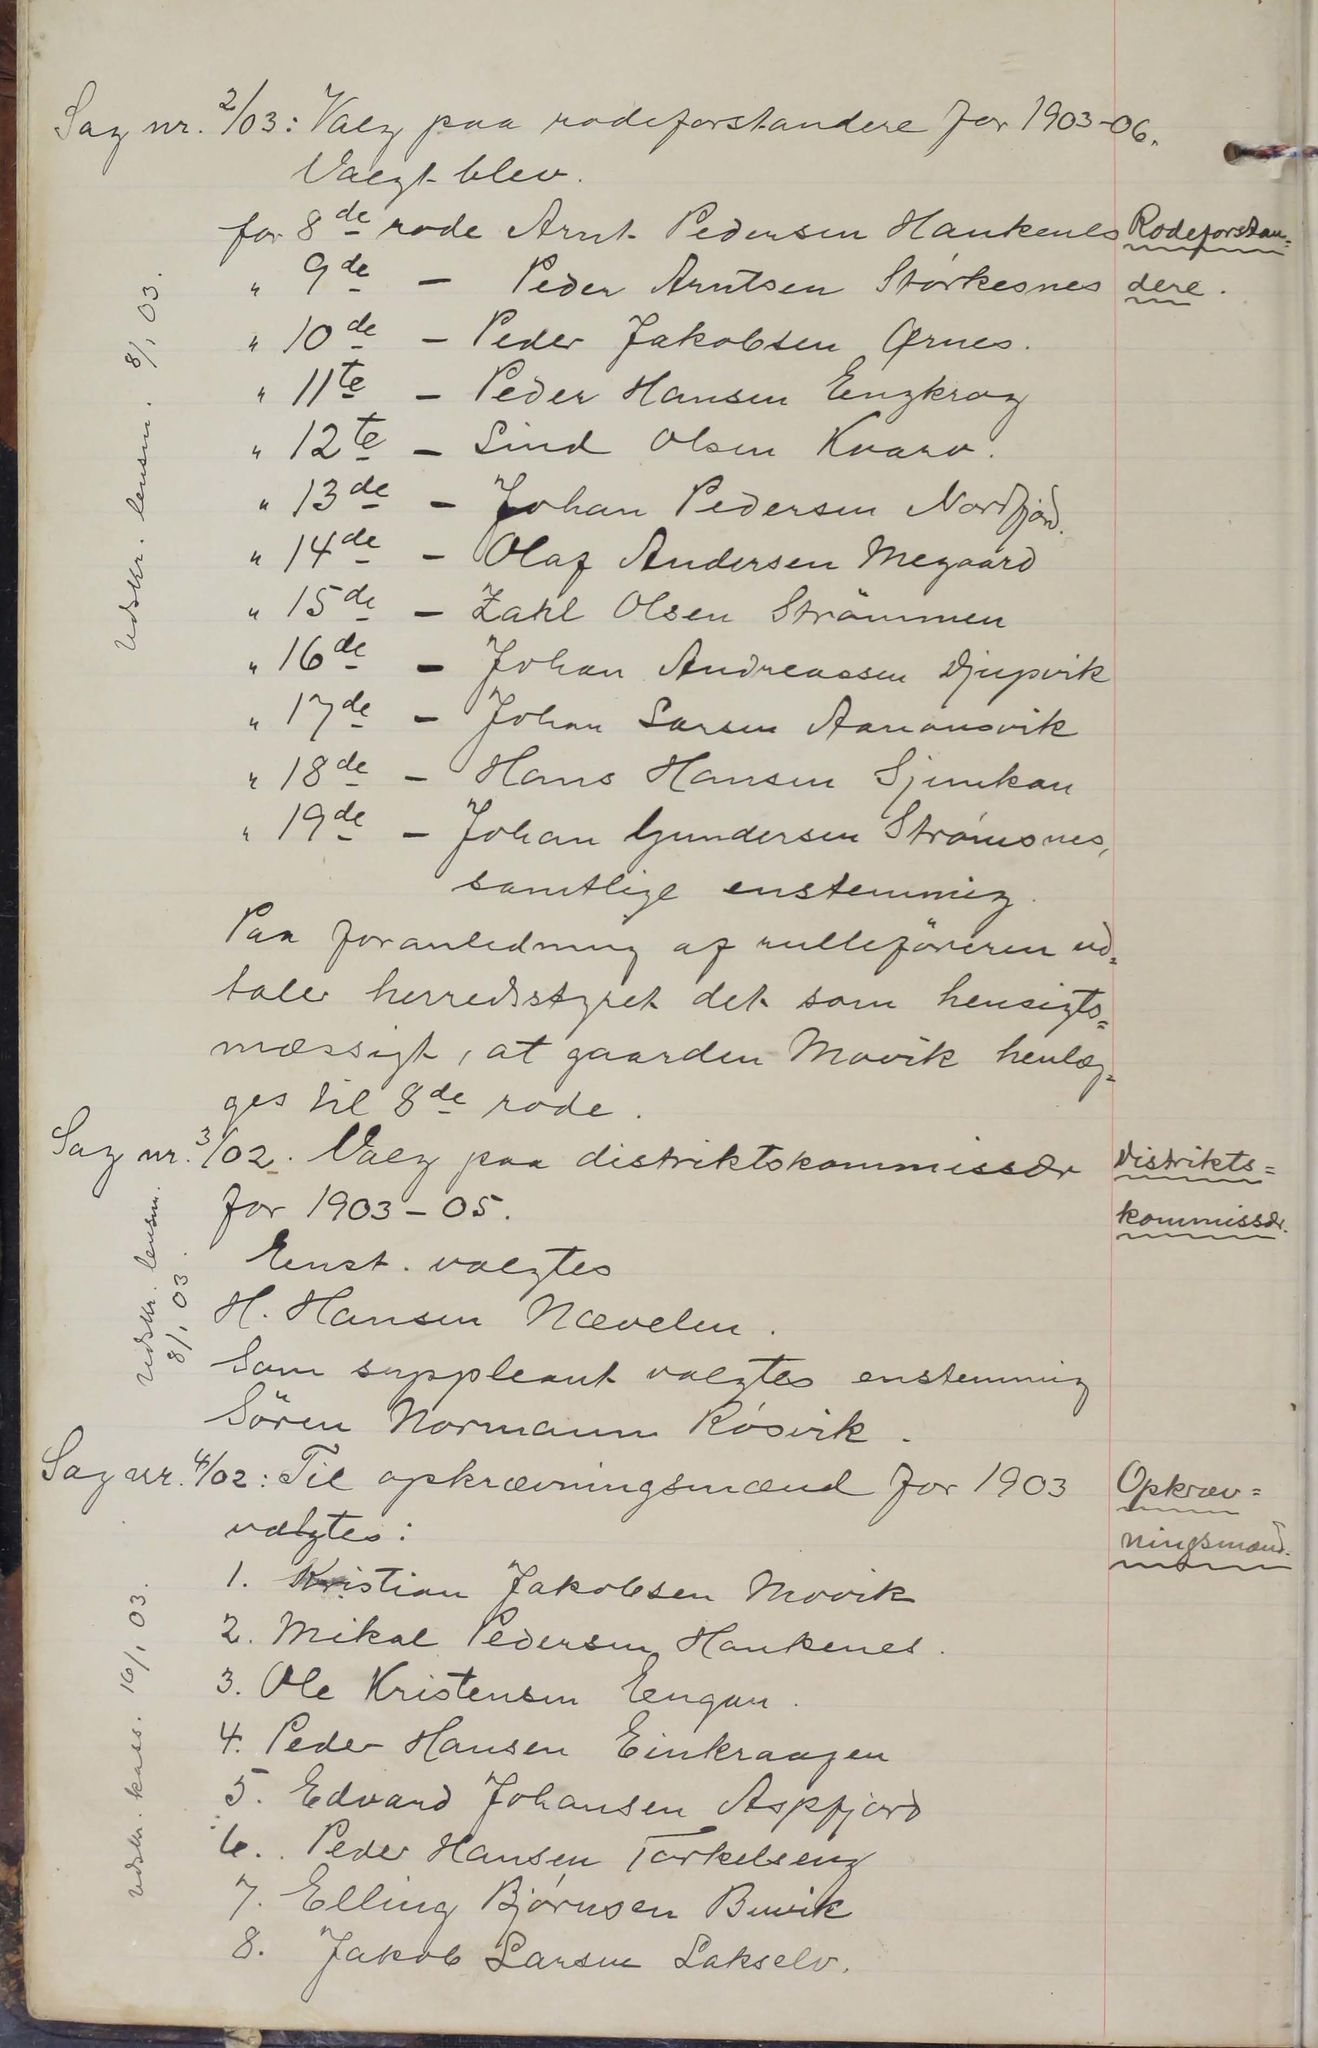 Sag nr. 2/03: Valg paa rodeforstandere for 1903-06.
Valgt blev.
for 8de rode Arnt Pedersen Haukenes
" 9de - Peder Arntsen Storkesnes
" 10de - Peder Jakobsen Ørnes.
" 11te - Peder Hansen Engkrog
" 12te - Lind Olsen Kvarv.
" 13de - Johan Pedersen Nordfjord.
" 14de - Olaf Andersen Megaard
" 15de - Zahl Olsen Strömmen
" 16de - Johan Andreassen Djupvik
" 17de - Johan Larsen Aanonsvik
" 18de - Hans Hansen Sjunkan
" 19de - Johan Gundersen Strömsnes,
samtlige enstemmig.
Rodeforstan=
dere.
Udskr. lensm. 8/1 03.
Paa foranledning af rulleföreren ud=
taler herredsstyret det som hensigts=
mæssigt, at gaarden Movik henlæg=
ges til 8de rode.
Sag nr. 3/02. Valg paa distriktskommissær
for 1903-05.
Enst. valgtes
H. Hansen Nævelen.
Som suppleant valgtes enstemmig
Sören Normann Rösvik.
Distrikts=
kommissær.
Udskr. lensm.
8/1 03.
Sag nr. 4/02: Til opkrævningsmænd for 1903
valgtes:
1. Kristian Jakobsen Movik
2. Mikal Pedersen Haukenes.
3. Ole Kristensen Engan.
4. Peder Hansen Einkraagen
5. Edvard Johansen Aspfjord
6. Peder Hansen Torkelseng
7. Elling Bjørnsen Buvik
8. Jakob Larsen Lakselv.
Opkræv=
ningsmænd.
Udskr. kass. 16/1 03.